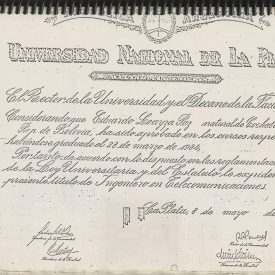 REPUBLICA ARGENTINA
UNIVERSIDAD NACIONAL DE LA P
El Rector de la Universidad y el Decano de la Fac
Considerando que Eduardo Loayza natural de
Rep. de Bolivia, ha sido aprobado en los cursos respe
habiéndose graduado el 28 de marzo de 1984,
Por tanto: de acuerdo con lo dispuesto en las reglamentacio
de la Ley Universitaria y del Estatuto, le expiden
presente título de Ingeniero en Telecomunicaciones.
La Plata, 8 de mayo de